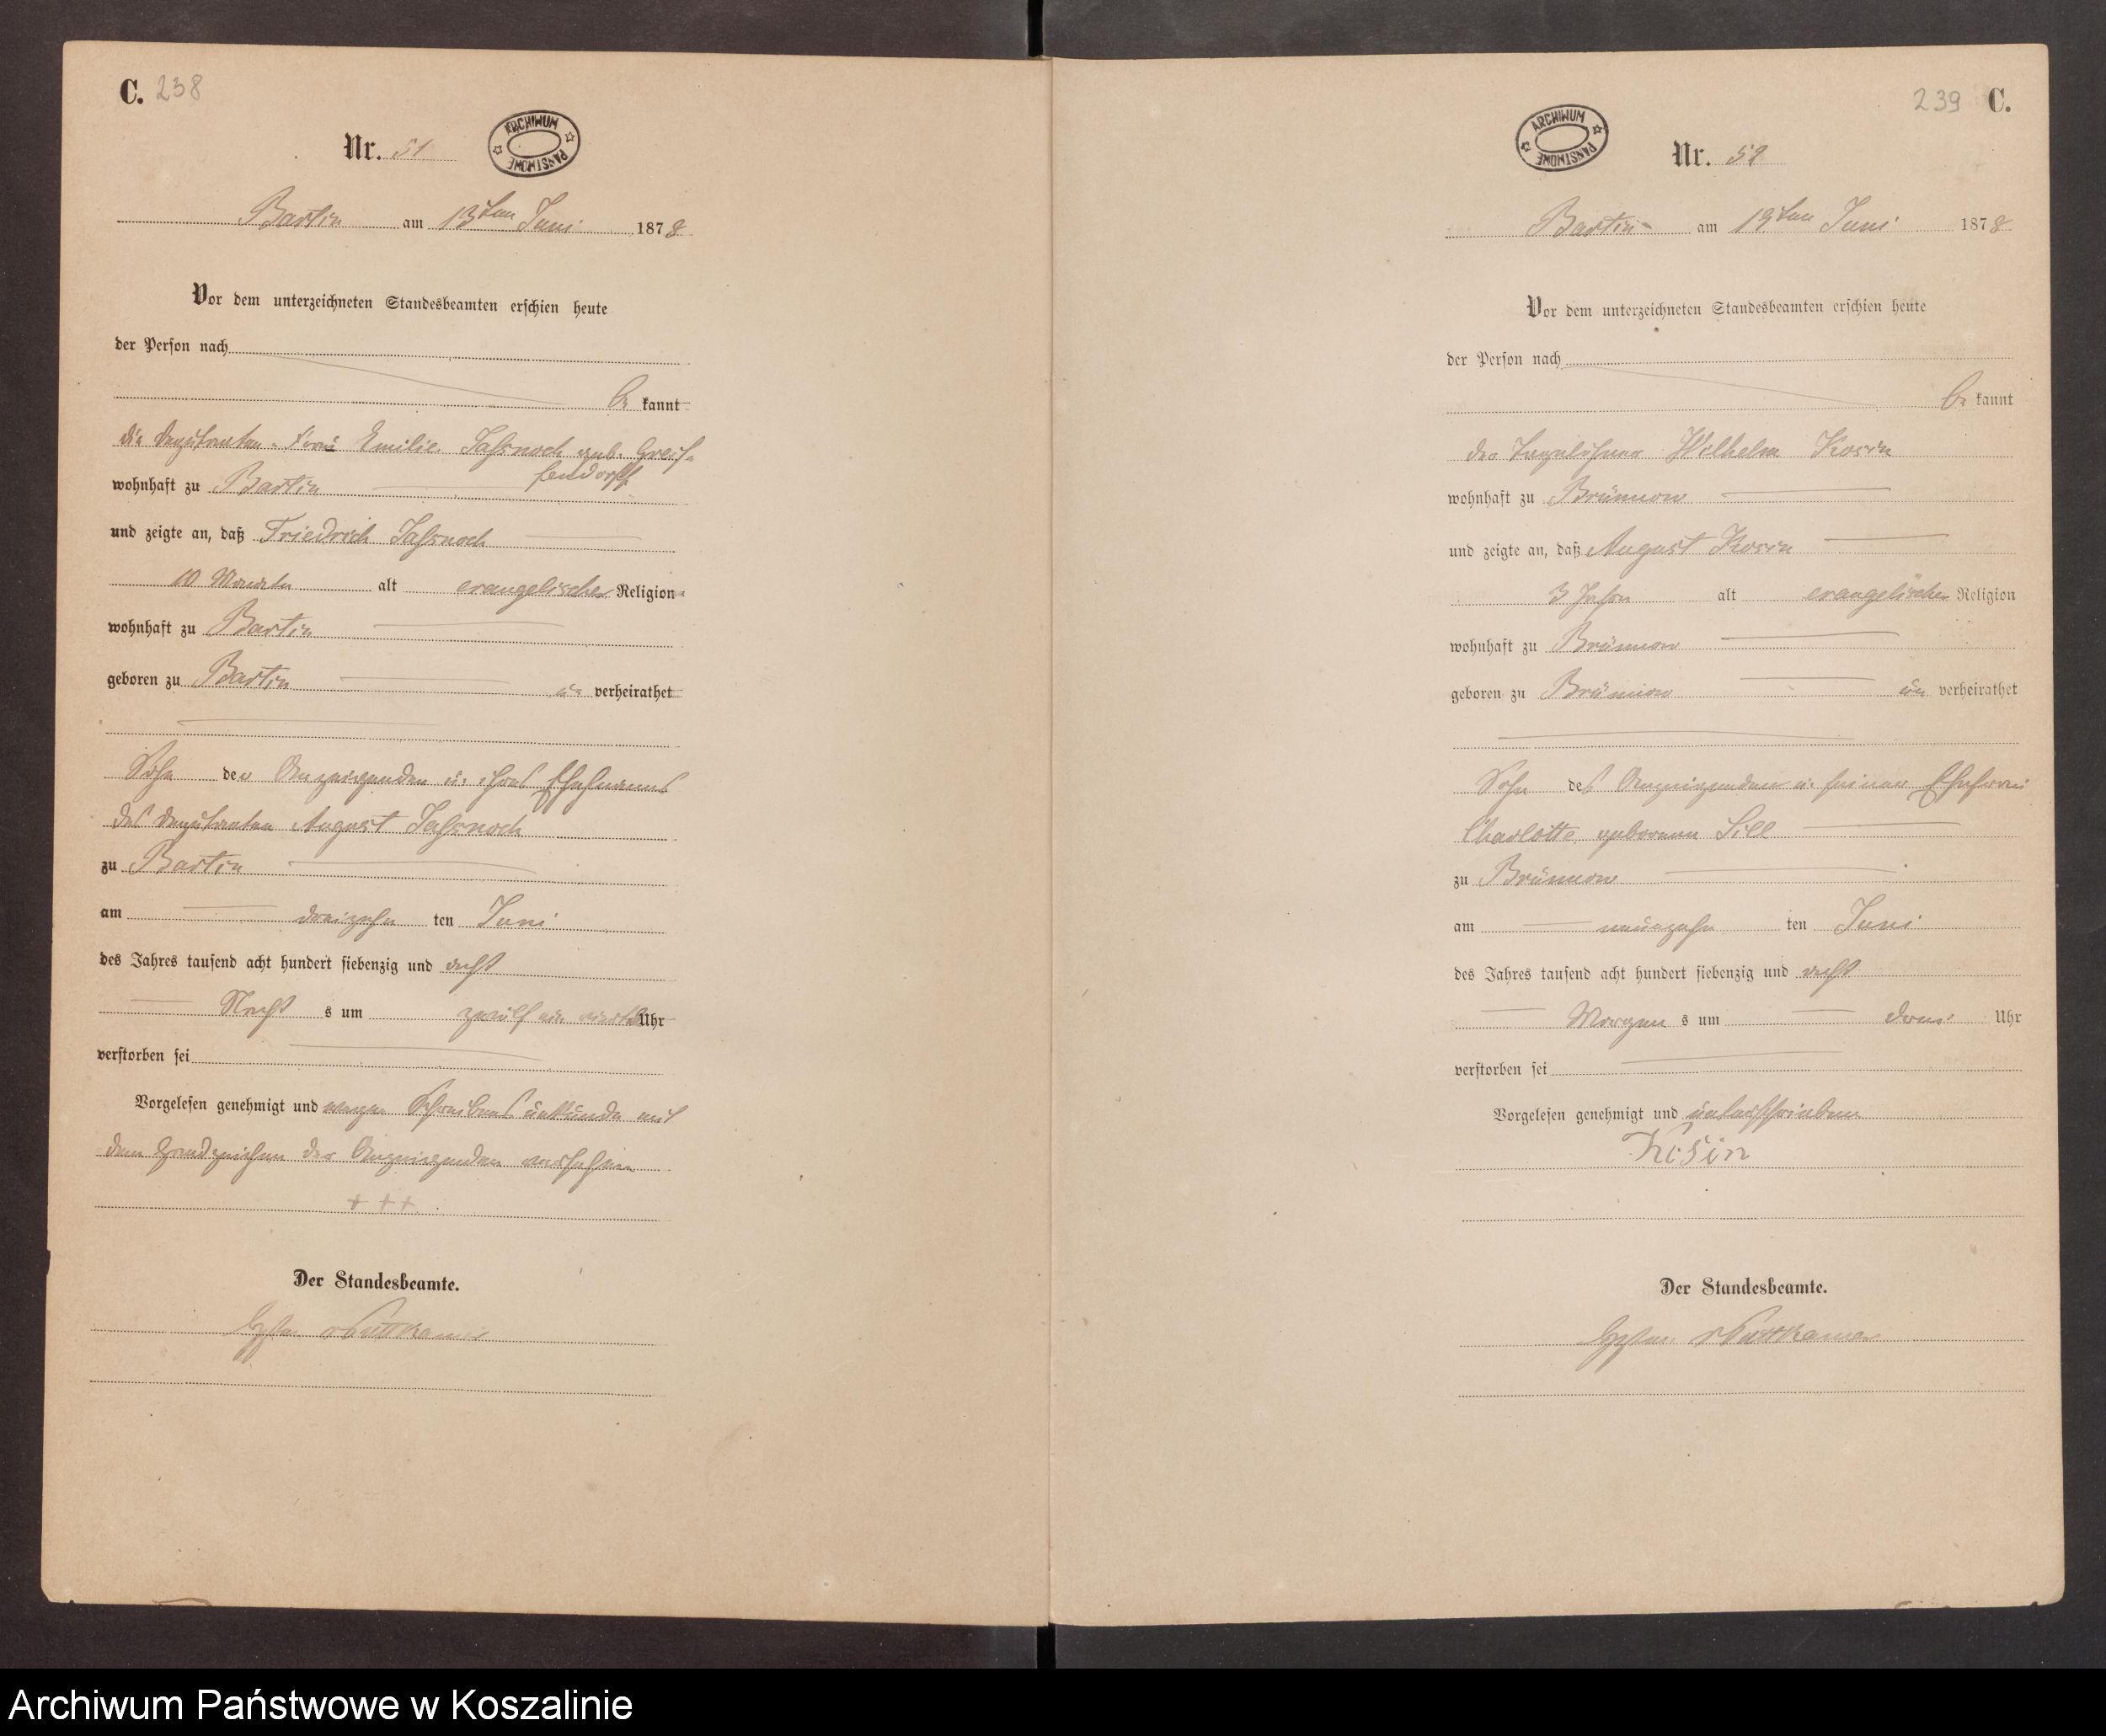 C. 238
ARCHIWUM PAŃSTWOWE
Nr. 51
Bartin am 13ten Juni 1878
Vor dem unterzeichneten Standesbeamten erschien heute
der Person nach
be kannt
die Deputanten-Frau Emilie geb. Greif-
fendorff
wohnhaft zu Bartin
und zeigte an, daß Friedrich
10 Monate alt evangelischer Religion
wohnhaft zu Bartin
geboren zu Bartin un verheirathet
Sohn der Anzeigenden u. ihres Ehemanns
des Deputanten August
zu Bartin
am dreizehn ten Juni
des Jahres tausend acht hundert siebenzig und acht
Nacht s um zwölf ein viertel Uhr
verstorben sei
Vorgelesen genehmigt und wegen Schreibens unkunde mit
dem Handzeichen der Anzeigenden versehen
+++
Der Standesbeamte.
vPuttkamer
239 C.
ARCHIWUM PAŃSTWOWE
Nr. 52
Bartin am 19ten Juni 1878
Vor dem unterzeichneten Standesbeamten erschien heute
der Person nach
be kannt
der Tagelöhner Wilhelm Kosin
wohnhaft zu Brünnow
und zeigte an, daß August Kosin
3 Jahre alt evangelischer Religion
wohnhaft zu Brünnow
geboren zu Brünnow un verheirathet
Sohn des Anzeigenden u. seiner Ehefrau
Charlotte, geborene Sill
zu Brünnow
am neunzehn ten Juni
des Jahres tausend acht hundert siebenzig und acht
Morgen s um drei Uhr
verstorben sei
Vorgelesen genehmigt und unterschrieben
Kosin
Der Standesbeamte.
vPuttkamer
Archiwum Państwowe w Koszalinie